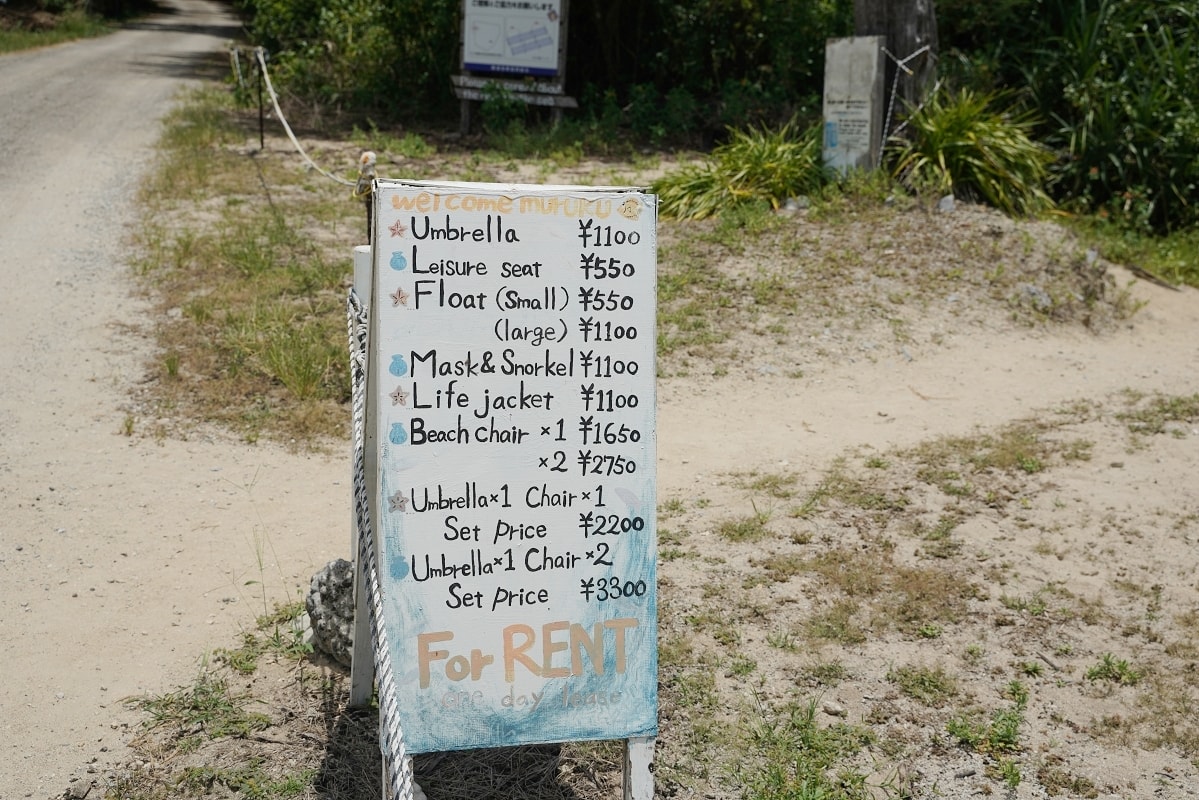 ご理解とご協力をお願いします。
welcome mururu
Umbrella ¥1100
Leisure seat ¥550
Float (small) ¥550
(large) ¥1100
Mask&Snorkel ¥1100
Life jacket ¥1100
Beach chair ×1 ¥1650
×2 ¥2750
Umbrella×1 Chair×1
Set price ¥2200
Umbrella×1 Chair×2
Set price ¥3300
For RENT
one day